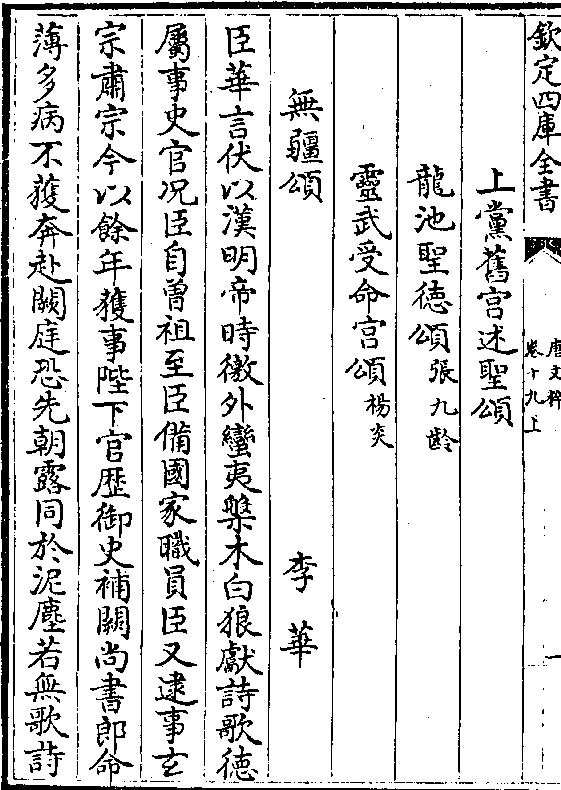 欽定四庫全書
唐文粹
卷十九上
一
上黨舊宮述聖頌
龍池聖德頌張九齡
靈武受命宮頌楊炎
無疆頌　李華
臣華言伏以漢明帝時徼外蠻夷槃木白狼獻詩歌德
屬事史官况臣自曾祖至臣備國家職員臣又逮事玄
宗肅宗今以餘年獲事陛下官歴御史補闕尚書郎命
薄多病不獲奔赴闕庭恐先朝露同於泥塵若無歌詩